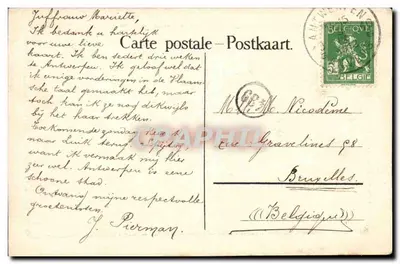 Juffrouw Mariette,
Ik bedank u hartelijk
voor uwe lieve
kaart. Ik ben sedert drie weken
te Antwerpen. Ik geloof wel dat
ik eenige vorderingen in de Vlaam
sche taal gemaakt heb, maar
toch kan ik ze nog dikwijls
bij het haar trekken.
Eerstkomende zondag
naar Luik terug
want ik vermaak mij hier
zeer wel. Antwerpen is eene
schoone stad.
Ontvang mijne respectvolle
groetenissen.
J. Pierman
Carte postale - Postkaart.
ANTWERPEN
BELGIQUE
5
BELGIË
M. Nicodème
Rue Gravelines 58
Bruxelles
(Belgique)
DELCAMPE